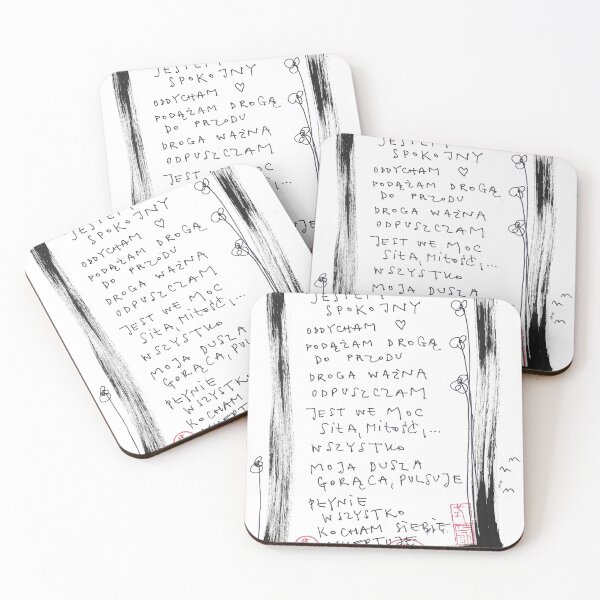 SPOKOJNY
ODDYCHAM ♡
PODĄŻAM DROGĄ
DO PRZODU
DROGA WAŻNA
ODPUSZCZAM
JEST WE
SPOKOJNY
ODDYCHAM ♡
PODĄŻAM DROGĄ
DO PRZODU
DROGA WAŻNA
ODPUSZCZAM
JEST WE MOC
SIŁA, MIŁOŚĆ,...
WSZYSTKO
MOJA DUSZA
SPOKOJNY
ODDYCHAM ♡
PODĄŻAM DROGĄ
DO PRZODU
DROGA WAŻNA
ODPUSZCZAM
JEST WE MOC
SIŁA, MIŁOŚĆ,...
WSZYSTKO
MOJA DUSZA
GORĄCA, PULSUJE
PŁYNIE
WSZYSTKO
KOCHAM
SPOKOJNY
ODDYCHAM ♡
PODĄŻAM DROGĄ
DO PRZODU
DROGA WAŻNA
ODPUSZCZAM
JEST WE MOC
SIŁA, MIŁOŚĆ,...
WSZYSTKO
MOJA DUSZA
GORĄCA, PULSUJE
PŁYNIE
WSZYSTKO
KOCHAM SIEBIĘ